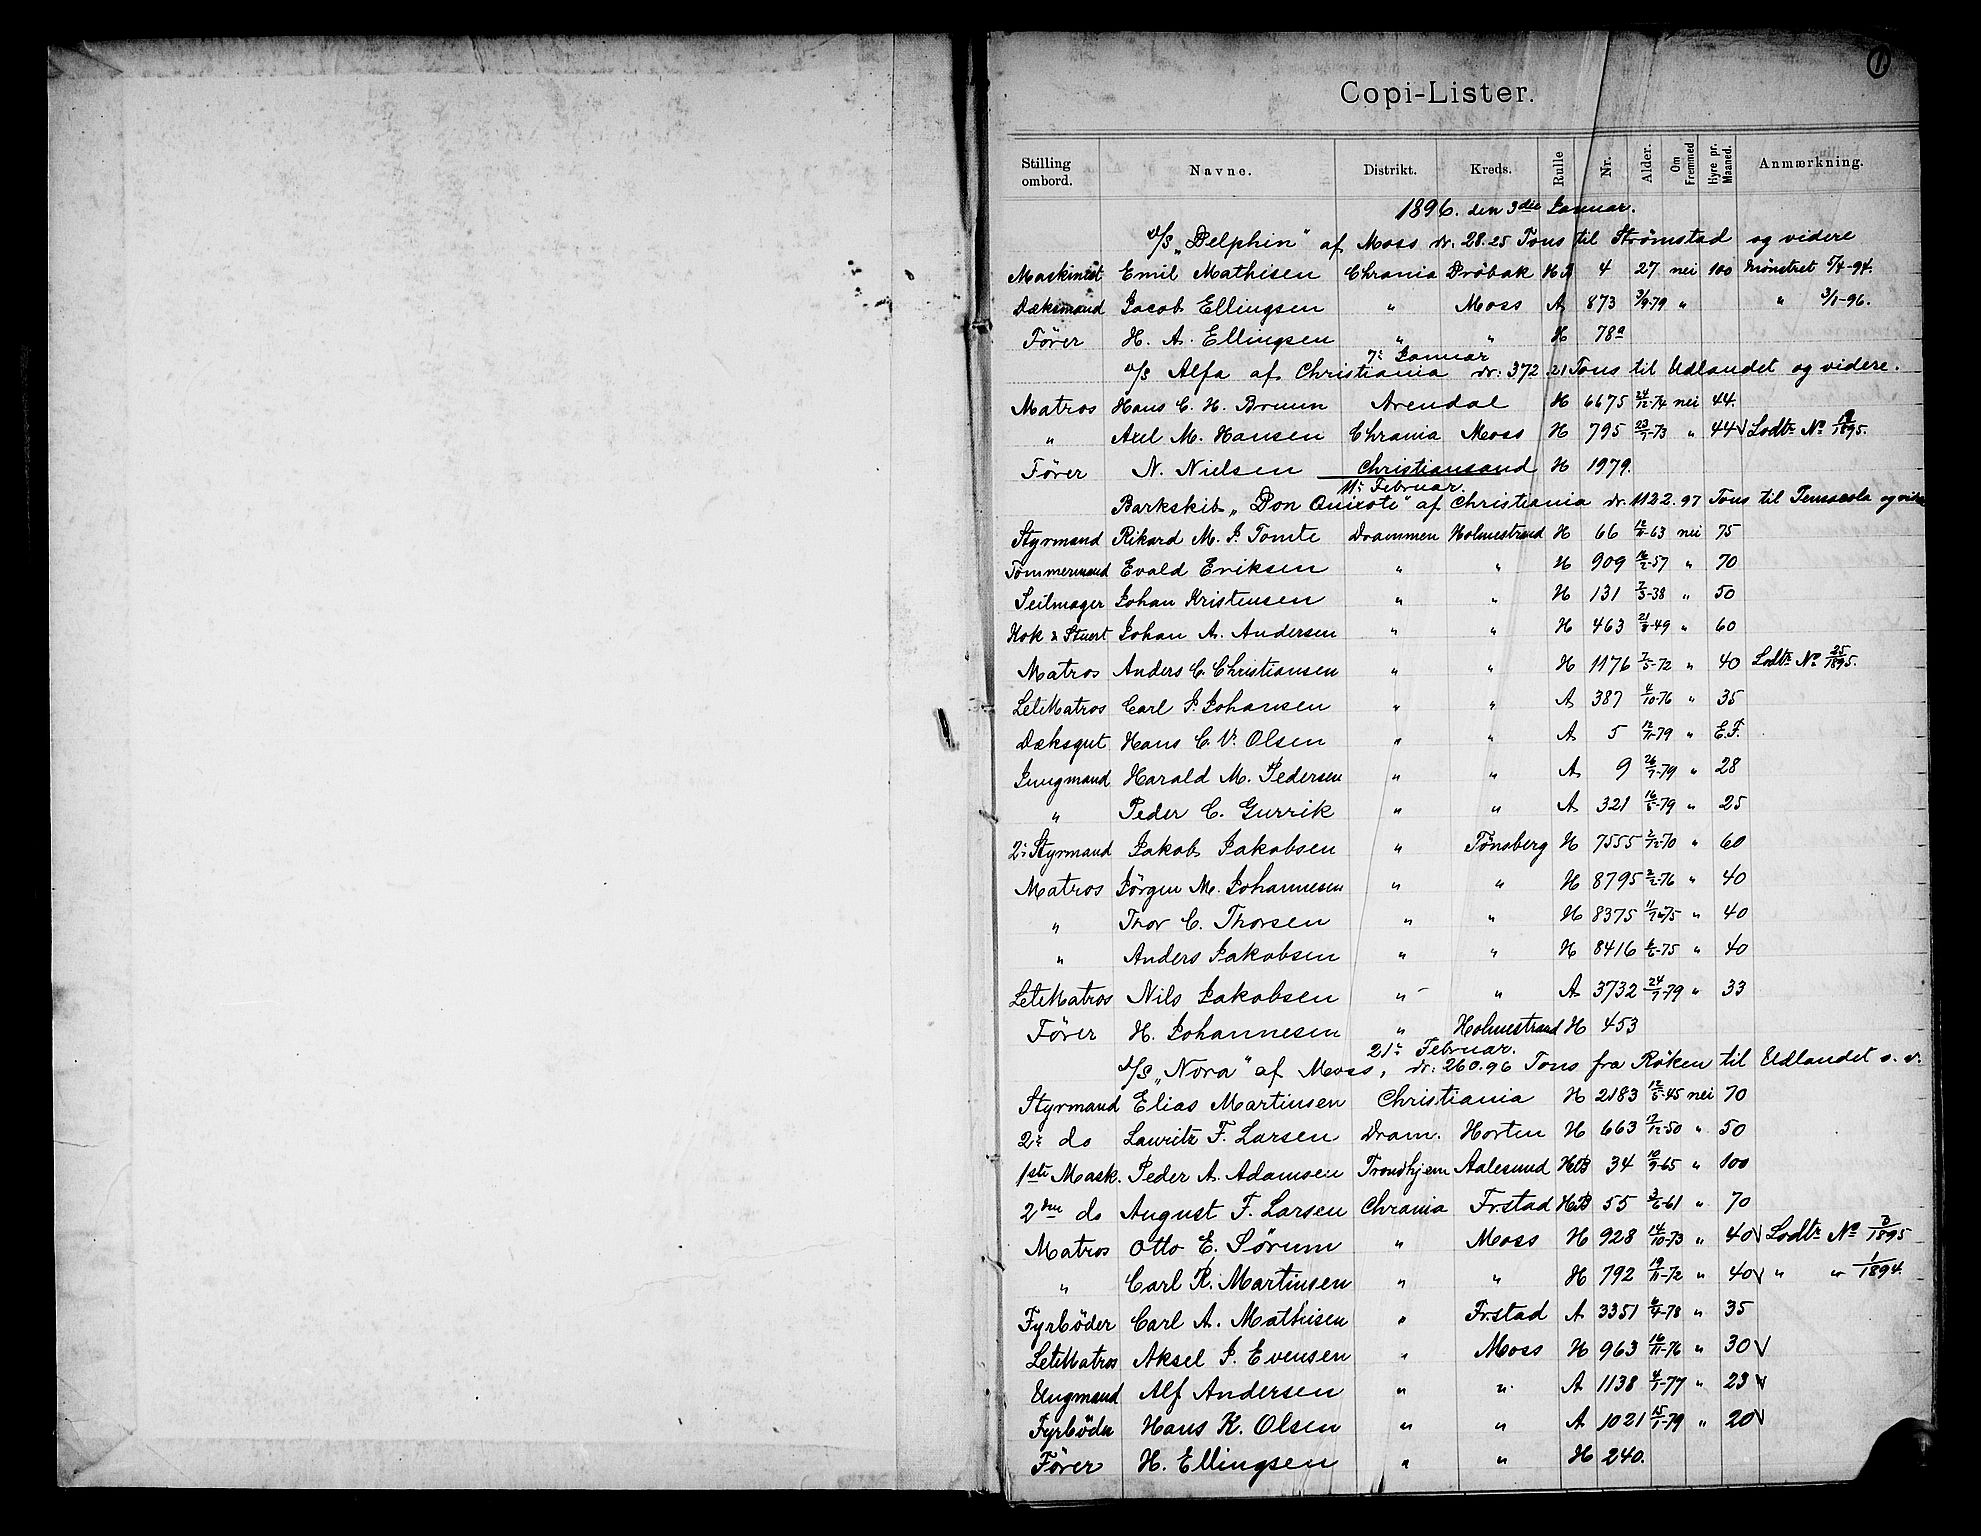 1
Copi-Lister.
Stilling ombord. Navne. Distrikt. Kreds. Rulle Nr. Alder. Om Fremmed Hyre pr. Maaned. Anmærkning.
1896. den 3die Januar.
D/S „Delphin“ af Moss dr. 28.25 Tons til Strømstad og videre
Maskinist Emil Mathisen Chrania Drøbak H B 4 27 nei 100 Mønstret 5/4-94.
Dæksmand Jacob Ellingsen " Moss A 873 3/9-79 " " 3/1-96.
Fører H. A. Ellingsen " " H 78a
7: Januar
D/S Alfa af Christiania dr: 372.21 Tons til Udlandet og videre.
Matros Hans C. H. Bruun Arendal H 6675 24/12-74 nei 44.
" Axel M. Hansen Chrania Moss H 795 23/1-73 " 44 √ Lodtr. No 9/1895.
Fører N. Nielsen Christiansand H 1979.
11: Februar.
Barkskib „Don Quixote“ af Christiania dr. 1122.97 Tons til Pensacola og videre
Styrmand Rikard M. J. Tomte Drammen Holmestrand H 66 12/11-63 nei 75
Tømmermand Evald Eriksen " " H 909 16/2-57 " 70
Seilmager Johan Kristensen " " H 131 7/3-38 " 50
Kok & Stuert Johan A. Andersen " " H 463 21/8-49 " 60
Matros Anders C. Christiansen " " H 1176 7/5-72 " 40 Lodtr. No. 25/1895.
LetMatros Carl J. Johansen " " A 387 4/10-76 " 35
Dæksgut Hans C. V. Olsen " " A 5 12/11-79 " E.F.
Jungmand Harald M. Pedersen " " A 9 26/7-79 " 28
" Peder C. Gurrik " " A 321 16/6-79 " 25
2: Styrmand Jakob Jakobsen " Tønsberg H 7555 2/12-70 " 60
Matros Jörgen M. Johannesen " " H 8795 2/2-76 " 40
" Thor C. Thorsen " " H 8375 11/12-75 " 40
" Anders Jakobsen " " H 8416 6/6-75 " 40
LetMatros Nils Jakobsen " " A 3732 24/7-79 " 33
Fører H. Johannesen " Holmestrand H 453
21: Februar.
D/S „Nora“ af Moss, dr: 260.96 Tons fra Røken til Udlandet o. v.
Styrmand Elias Martinsen Christiania H 2183 12/6-45 nei 70
2: do Lauritz F. Larsen Dram. Horten H 663 17/12-50 " 50
1ste Mask. Peder A. Adamsen Trondhjem Aalesund HB 34 10/9-65 " 100
2den do August F. Larsen Chrania Fr.stad HB 55 3/6-61 " 70
Matros Otto E. Sørum " Moss H 928 14/10-73 " 40 √ Lodtr. No 7/1895
" Carl R. Martinsen " " H 792 19/11-72 " 40 √ " " 1/1894.
Fyrbøder Carl A. Mathisen " Fr.stad A 3351 6/4-78 " 35
LetMatros Aksel J. Evensen " Moss H 963 16/11-76 " 30 √
Ungmand Alf Andersen " " A 1138 4/1-77 " 23 √
Fyrbøder Hans K. Olsen " " A 1021 15/1-79 " 20 √
Fører H. Ellingsen " " H 240.